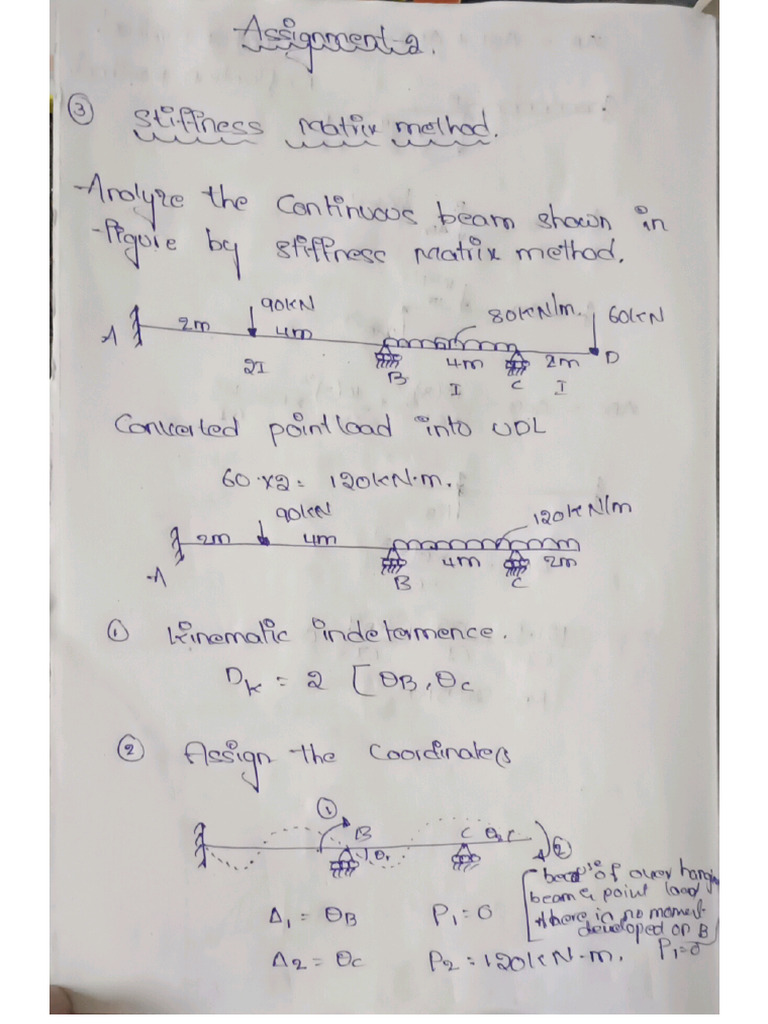 Assignment-2.
③ Stiffness Matrix method.
Analyze the Continuous beam shown in
figure by stiffness Matrix method.
90kN 80kN/m. 60kN
A 2m 4m 4m 2m D
2I B I C I
Converted point load into UDL
60×2 = 120kN·m.
90kN 120kN/m
2m 4m 4m 2m
A B C
① Kinematic indetermence.
Dk = 2 [θB, θC
② Assign the Coordinates
① B C θC ②
of over hanging
beam & point load
there is no moment
developed on B
Δ1 = θB P1 = 0 P1=0
Δ2 = θC P2 = 120kN-m.